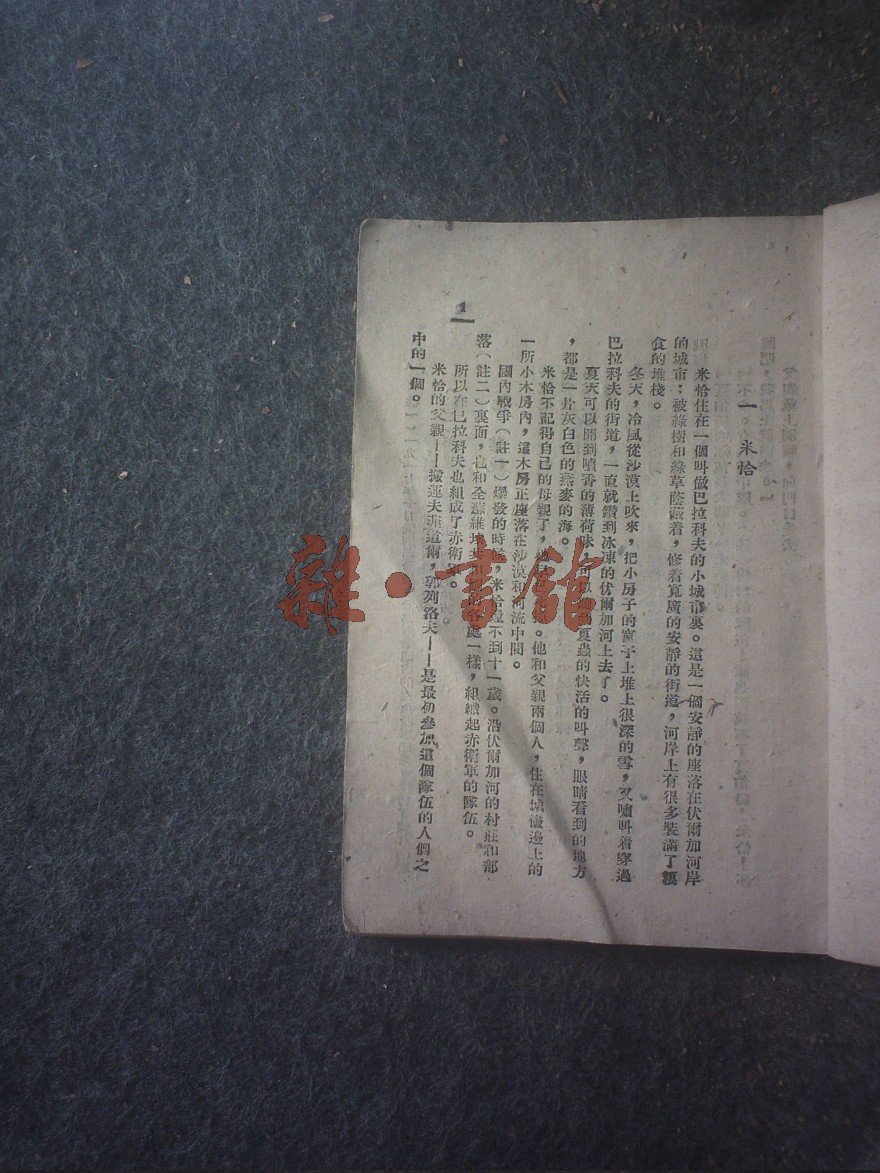 一 米恰
米恰住在一個叫做巴拉科夫的小城市裏。這是一個安靜的座落在伏爾加河岸
的城市；被綠樹和綠草蔭蔽着，修着寬廣的安靜的街道，河岸上有很多裝滿了糧
食的堆棧。
冬天，冷風從沙漠上吹來，把小房子的窗子上堆上很深的雪，又嘯叫着穿過
巴拉科夫的街道，一直就鑽到冰凍的伏爾加河上去了。
夏天可以聞到噴香的薄荷味，可以夏蟲的快活的叫聲，眼睛看到的地方
，都是一片灰白色的燕麥的海。
米恰不記得自己的母親了，。他和父親兩個人，住在城儘邊上的
一所小木房內，這木房正座落在沙漠和河流中間。
國內戰爭（註一）爆發的時候，米恰還不到十一歲。沿伏爾加河的村莊和部
落（註二）裏面，也和全蘇維埃處一樣，組織起赤衛軍的隊伍。
所以在巴拉科夫也組成了赤衛軍。
米恰的父親——搬運夫涯道爾，郭列洛夫——是最初參加這個隊伍的人們之
中的一個。
1
雜·書館